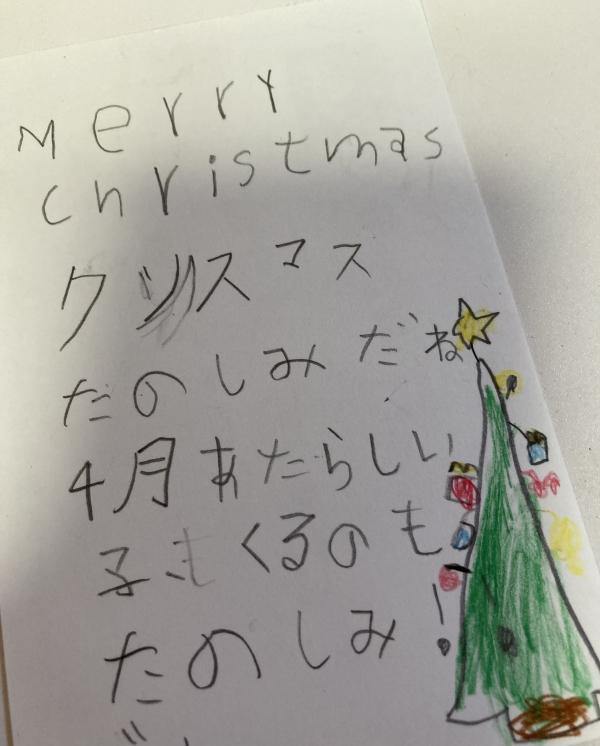 Merry
christmas
クリスマス
たのしみだね
4月あたらしい
子もくるのも
たのしみ!